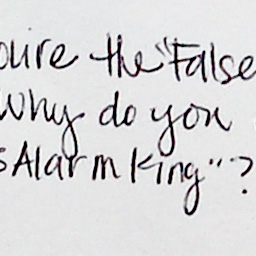 oure the "False
Why do you
sAlarm King"?